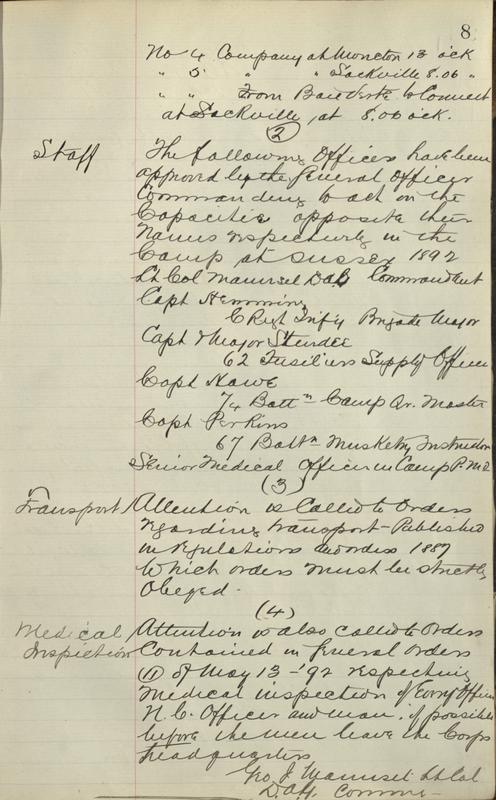 8
No 4 Company at Moncton 13 ock
" 5 " " Sackville 8.00 "
" " From Baie Verte to Connect
at Sackville, at 8.00 ock.
(2)
Staff
The following Officers have been
approved by the General Officer
Commanding to act in the
Capacities opposite their
Names respectively in the
Camp at Sussex 1892
Lt Col Maunsel DAG Commandant
Capt Hemming
C Regt Inf'y Brigade Major
Capt & Major Sturdee
62 Fusiliers Supply Officer
Capt Howe
74 Battn Camp Qr. Master
Capt Perkins
67 Battn Musketry Instructor
Senior Medical Officer in Camp P.M.O
(3)
Transport
Attention is Called to Orders
regarding transport - Published
in regulations & orders 1887
Which orders must be strictly
Obeyed -
(4)
Medical
Inspection
Attention is also called to Orders
Contained in General Orders
(11) of May 13 - '92 respecting
Medical inspection of Every Officer
N.C. Officer and man, if possible
before the men leave the Corps
headquarters
Geo J Maunsel Lt Col
D.A.G. Comm